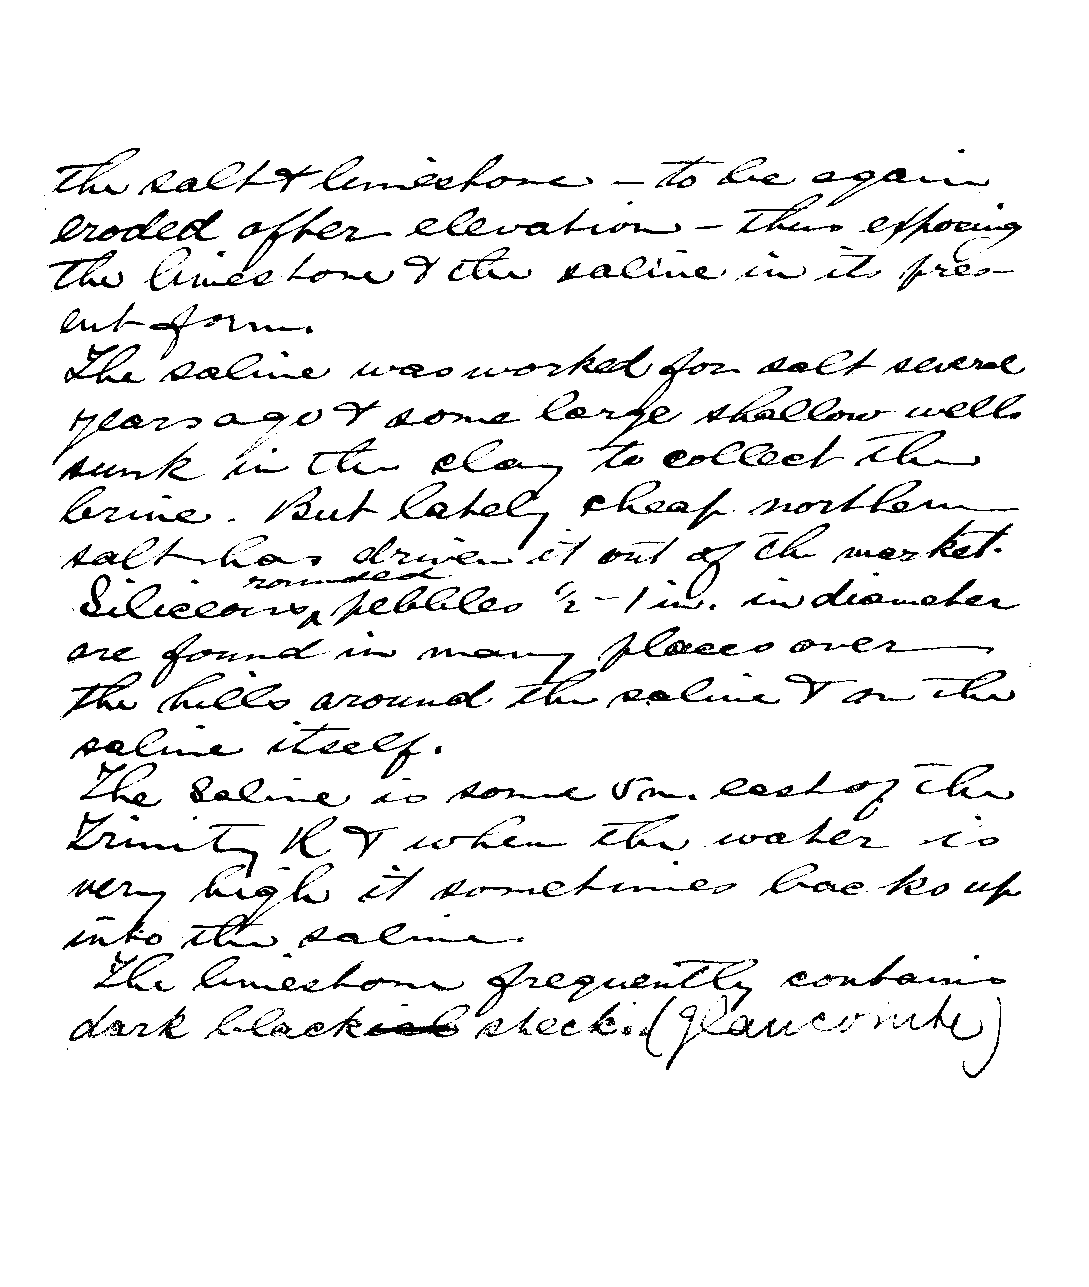 the salt & limestone – to be again
eroded after elevation – thus exposing
the limestone & the saline in its pres-
ent form.
The saline was worked for salt several
years ago & some large shallow wells
sunk in the clay to collect the
brine. But lately cheap northern
salt has driven it out of the market.
rounded
Siliceous ‸ pebbles ½ – 1 in. in diameter
are found in many places over
the hills around the saline & on the
saline itself.
The Saline is some 5 m. east of the
Trinity R & when the water is
very high it sometimes backs up
into the saline.
The limestone frequently contains
dark black specks. (glauconite)